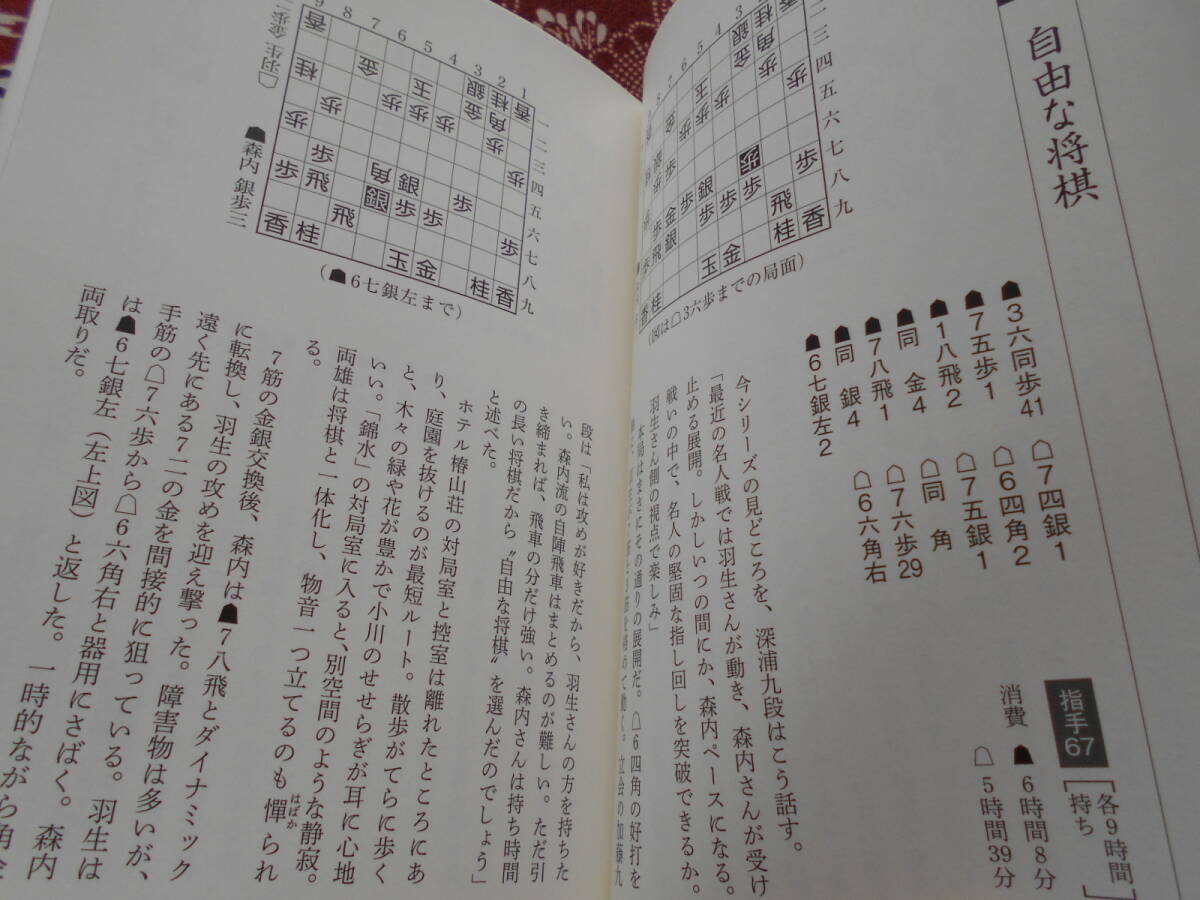 自由な将棋
指手67
〔各9時間持ち〕
消費 ☗6時間8分
☖5時間39分
☗3六同歩41 ☖7四銀1
☗7五歩1 ☖6四角2
☗1八飛2 ☖7五銀1
☗同 金4 ☖同 角
☗7八飛1 ☖7六歩29
☗同 銀4 ☖6六角右
☗6七銀左2
(図は☖3六歩までの局面)
今シリーズの見どころを、深浦九段はこう話す。
「最近の名人戦では羽生さんが動き、森内さんが受け
止める展開。しかしいつの間にか、森内ペースになる。
戦いの中で、名人の堅固な指し回しを突破できるか。
羽生さん側の視点で楽しみ」
本局はまさにその通りの展開だ。☖6四角の好打を
立会の加藤九
段は「私は攻めが好きだから、羽生さんの方を持ちた
い。森内流の自陣飛車はまとめるのが難しい。ただ引
き締まれば、飛車の分だけ強い。森内さんは持ち時間
の長い将棋だから〝自由な将棋〟を選んだのでしょう」
と述べた。
ホテル椿山荘の対局室と控室は離れたところにあ
り、庭園を抜けるのが最短ルート。散歩がてらに歩く
と、木々の緑や花が豊かで小川のせせらぎが耳に心地
いい。「錦水」の対局室に入ると、別空間のような静寂。
両雄は将棋と一体化し、物音一つ立てるのも憚られ
る。
7筋の金銀交換後、森内は☗7八飛とダイナミック
に転換し、羽生の攻めを迎え撃った。障害物は多いが、
遠く先にある7二の金を間接的に狙っている。羽生は
手筋の☖7六歩から☖6六角右と器用にさばく。森内
は☗6七銀左（左上図）と返した。一時的ながら角金
両取りだ。
(☗6七銀左まで)
☗森内 銀歩三
☖羽生 金歩一